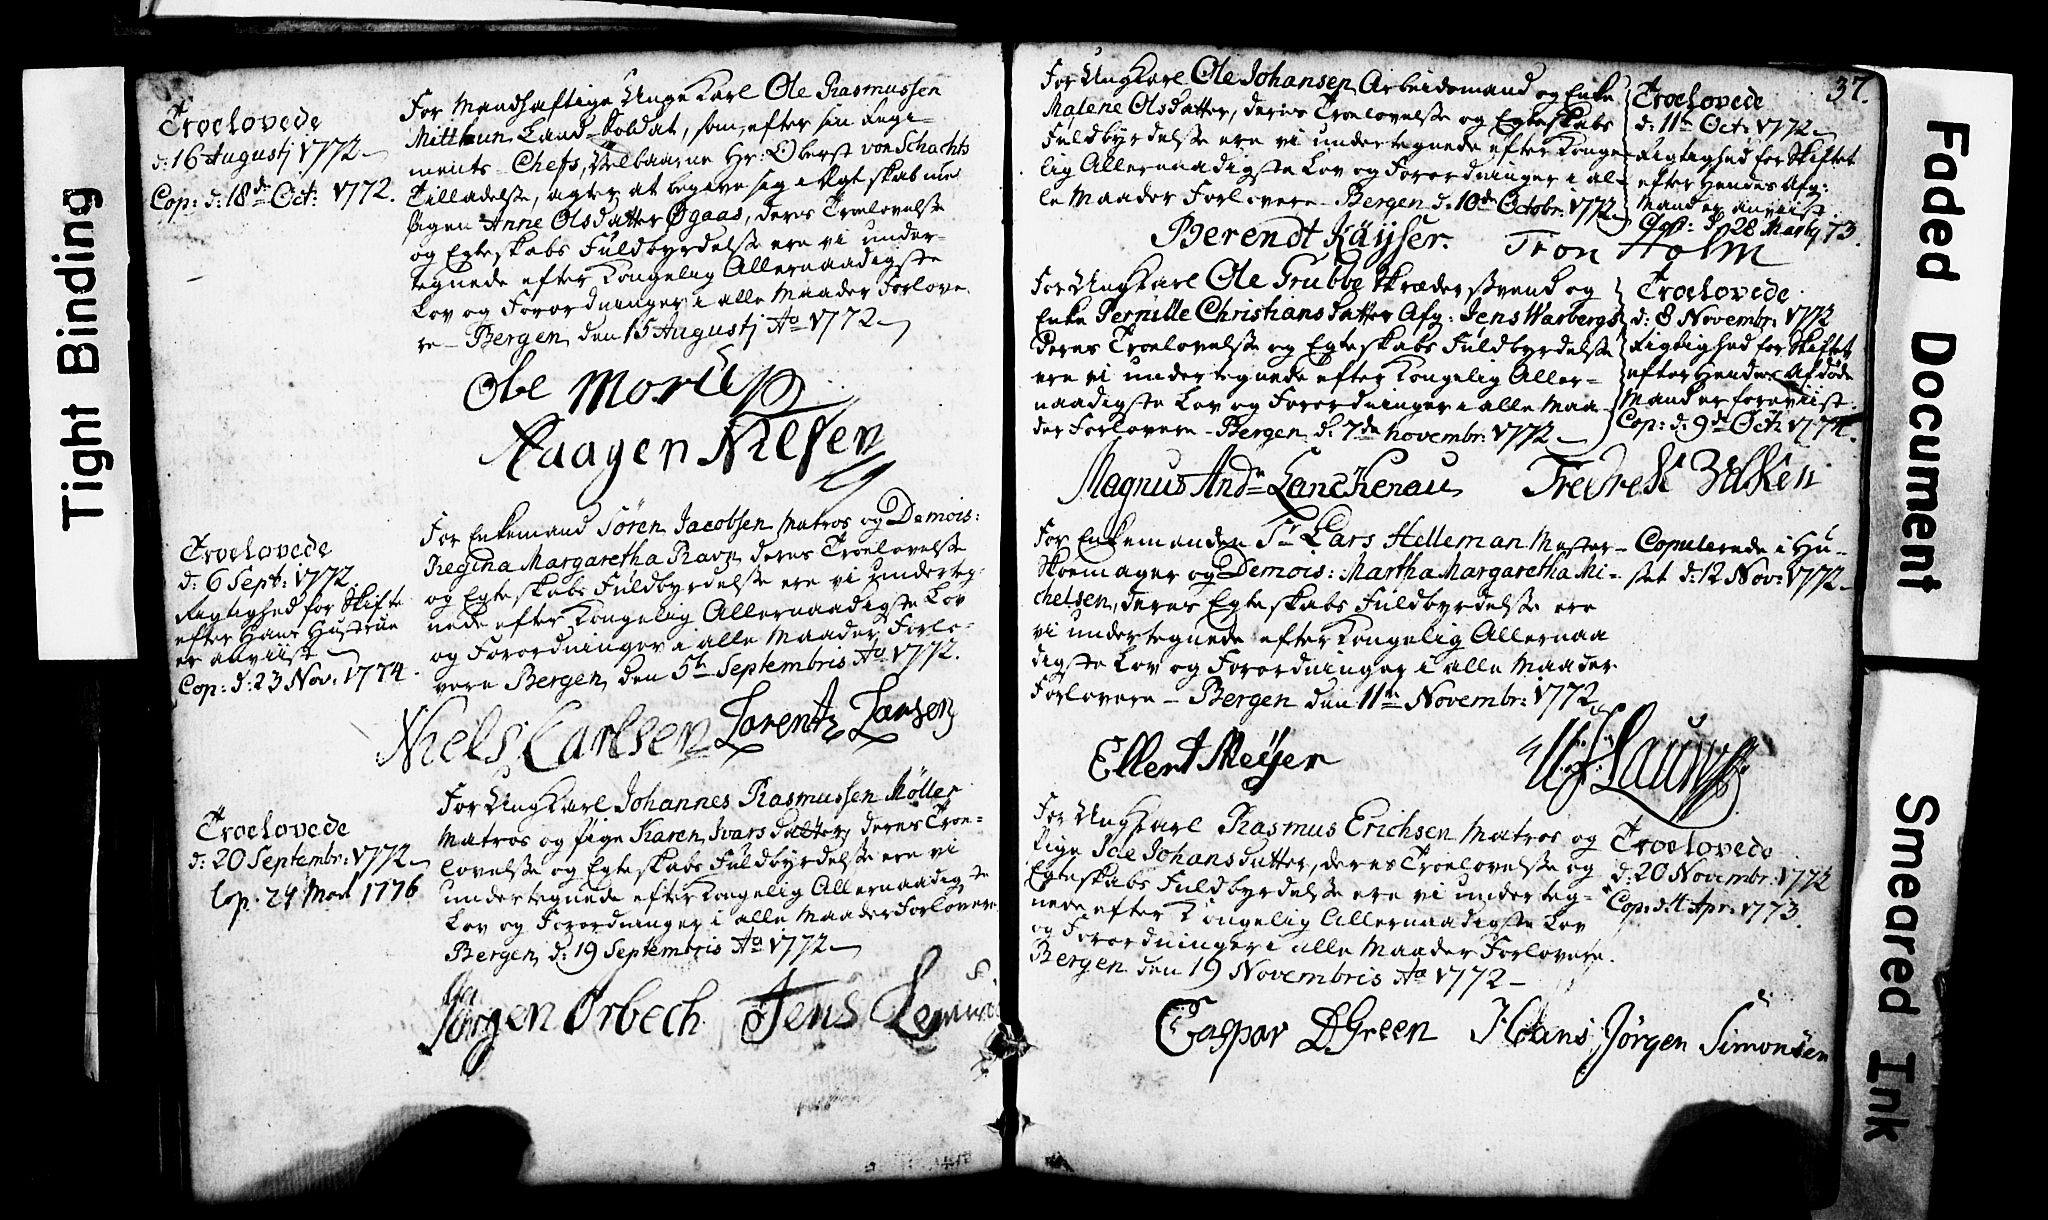 Tight Binding
Troelovede
d: 16 Augustj 1772
Cop: d: 18de Oct: 1772.
For Mandhaftige Unge Karl Ole Rasmussen
Mitthun Land-Soldat, som, efter sin Regi-
ments-Chefs, Velbaarne Hr: Oberst von Schachts
Tilladelse, agter at begive sig i Egteskab med
Pigen Anne Olsdatter Øgaas, deres Troelovelse
og Egteskabs Fuldbyrdelse ere vi under-
tegnede efter Kongelig Allernaadigste
Lov og Forordninger i alle Maader Forlove-
re – Bergen den 15 Augustj Ao 1772
Obe
Haagen Nilsen
Troelovede
d: 6 Sept: 1772.
Rigtighed for Skifte
efter Hans Hustrue
er anviist
Cop: d: 23 Nov: 1774.
For Enkemand Sören Jacobsen Matros og Demois:
Regina Margaretha Ravn deres Troelovelse
og Egteskabs Fuldbyrdelse ere vi underteg-
nede efter Kongelig Allernaadigste Lov
og Forordninger i alle Maader Forlo-
vere Bergen den 5te Septembris Ao 1772.
Niels Carlsen Lorentz Larsen
Troelovede
d: 20 Septembr: 1772
Cop. 24 1776
For Ung Karl Johannes Rasmussen Möller
Matros og Pige Karen Ivarsdatter, deres Troe-
lovelse og Egteskabs Fuldbyrdelse ere vi
undertegnede efter Kongelig Allernaadigste
Lov og Forordninger i alle Maader Forlovere
Bergen d: 19 Septembris Ao 1772
Jörgen Orbech Jens
37.
For Ung Karl Ole Johansen Arbeidsmand og Enke
Malene Olsdatter, deres Troelovelse og Egteskabs
Fuldbyrdelse ere vi undertegnede efter Konge-
lig Allernaadigste Lov og Forordninger i al-
le Maader Forlovere – Bergen d: 10de Octobr: 1772
Troelovede
d: 11te Oct: 1772
Rigtighed for Skiftet
efter Hendes Afg:
Mand er anviist.
Cop: d: 28 Martij 73.
Berendt Käÿser. Tron Holm
For Ung Karl Ole Grubbe Skræder Svend og
Enke Pernille Christiansdatter Afg: Jens Warbergs
deres Troelovelse og Egteskabs Fuldbyrdelse
ere vi undertegnede efter Kongelig Aller-
naadigste Lov og Forordninger i alle Maa-
der Forlovere – Bergen d: 7de Novembr: 1772
Troelovede
d: 8 Novembr: 1772
Rigtighed for Skiftet
efter Hendes Afdöde
Mand er foreviist.
Cop: d: 9de Oct: 1774.
Magnus Andr Lanckenau Fredrek
For Enkemanden Sr Lars Helleman Mester-
Skoemager og Demois: Martha Margaretha Mi-
chelsen, deres Egteskabs Fuldbyrdelse ere
vi undertegnede efter Kongelig Allernaa
digste Lov og Forordninger i alle Maader
Forlovere – Bergen den 11te Novembr: 1772
Copulerede i Hu-
set d: 12 Nov: 1772
Ellert Meÿer
For Ung Karl Rasmus Erichsen Matros og
Pige Johansdatter, deres Troelovelse og
Egteskabs Fuldbyrdelse ere vi underteg-
nede efter Kongelig Allernaadigste Lov
og Forordninger i alle Maader Forlovere.
Bergen den 19 Novembris Ao 1772
Troelovede
d: 20 Novembr: 1772
Cop: d: Apr: 1773.
Caspar D Green Hans Jörgen Simonsen
Faded Document
Smeared Ink